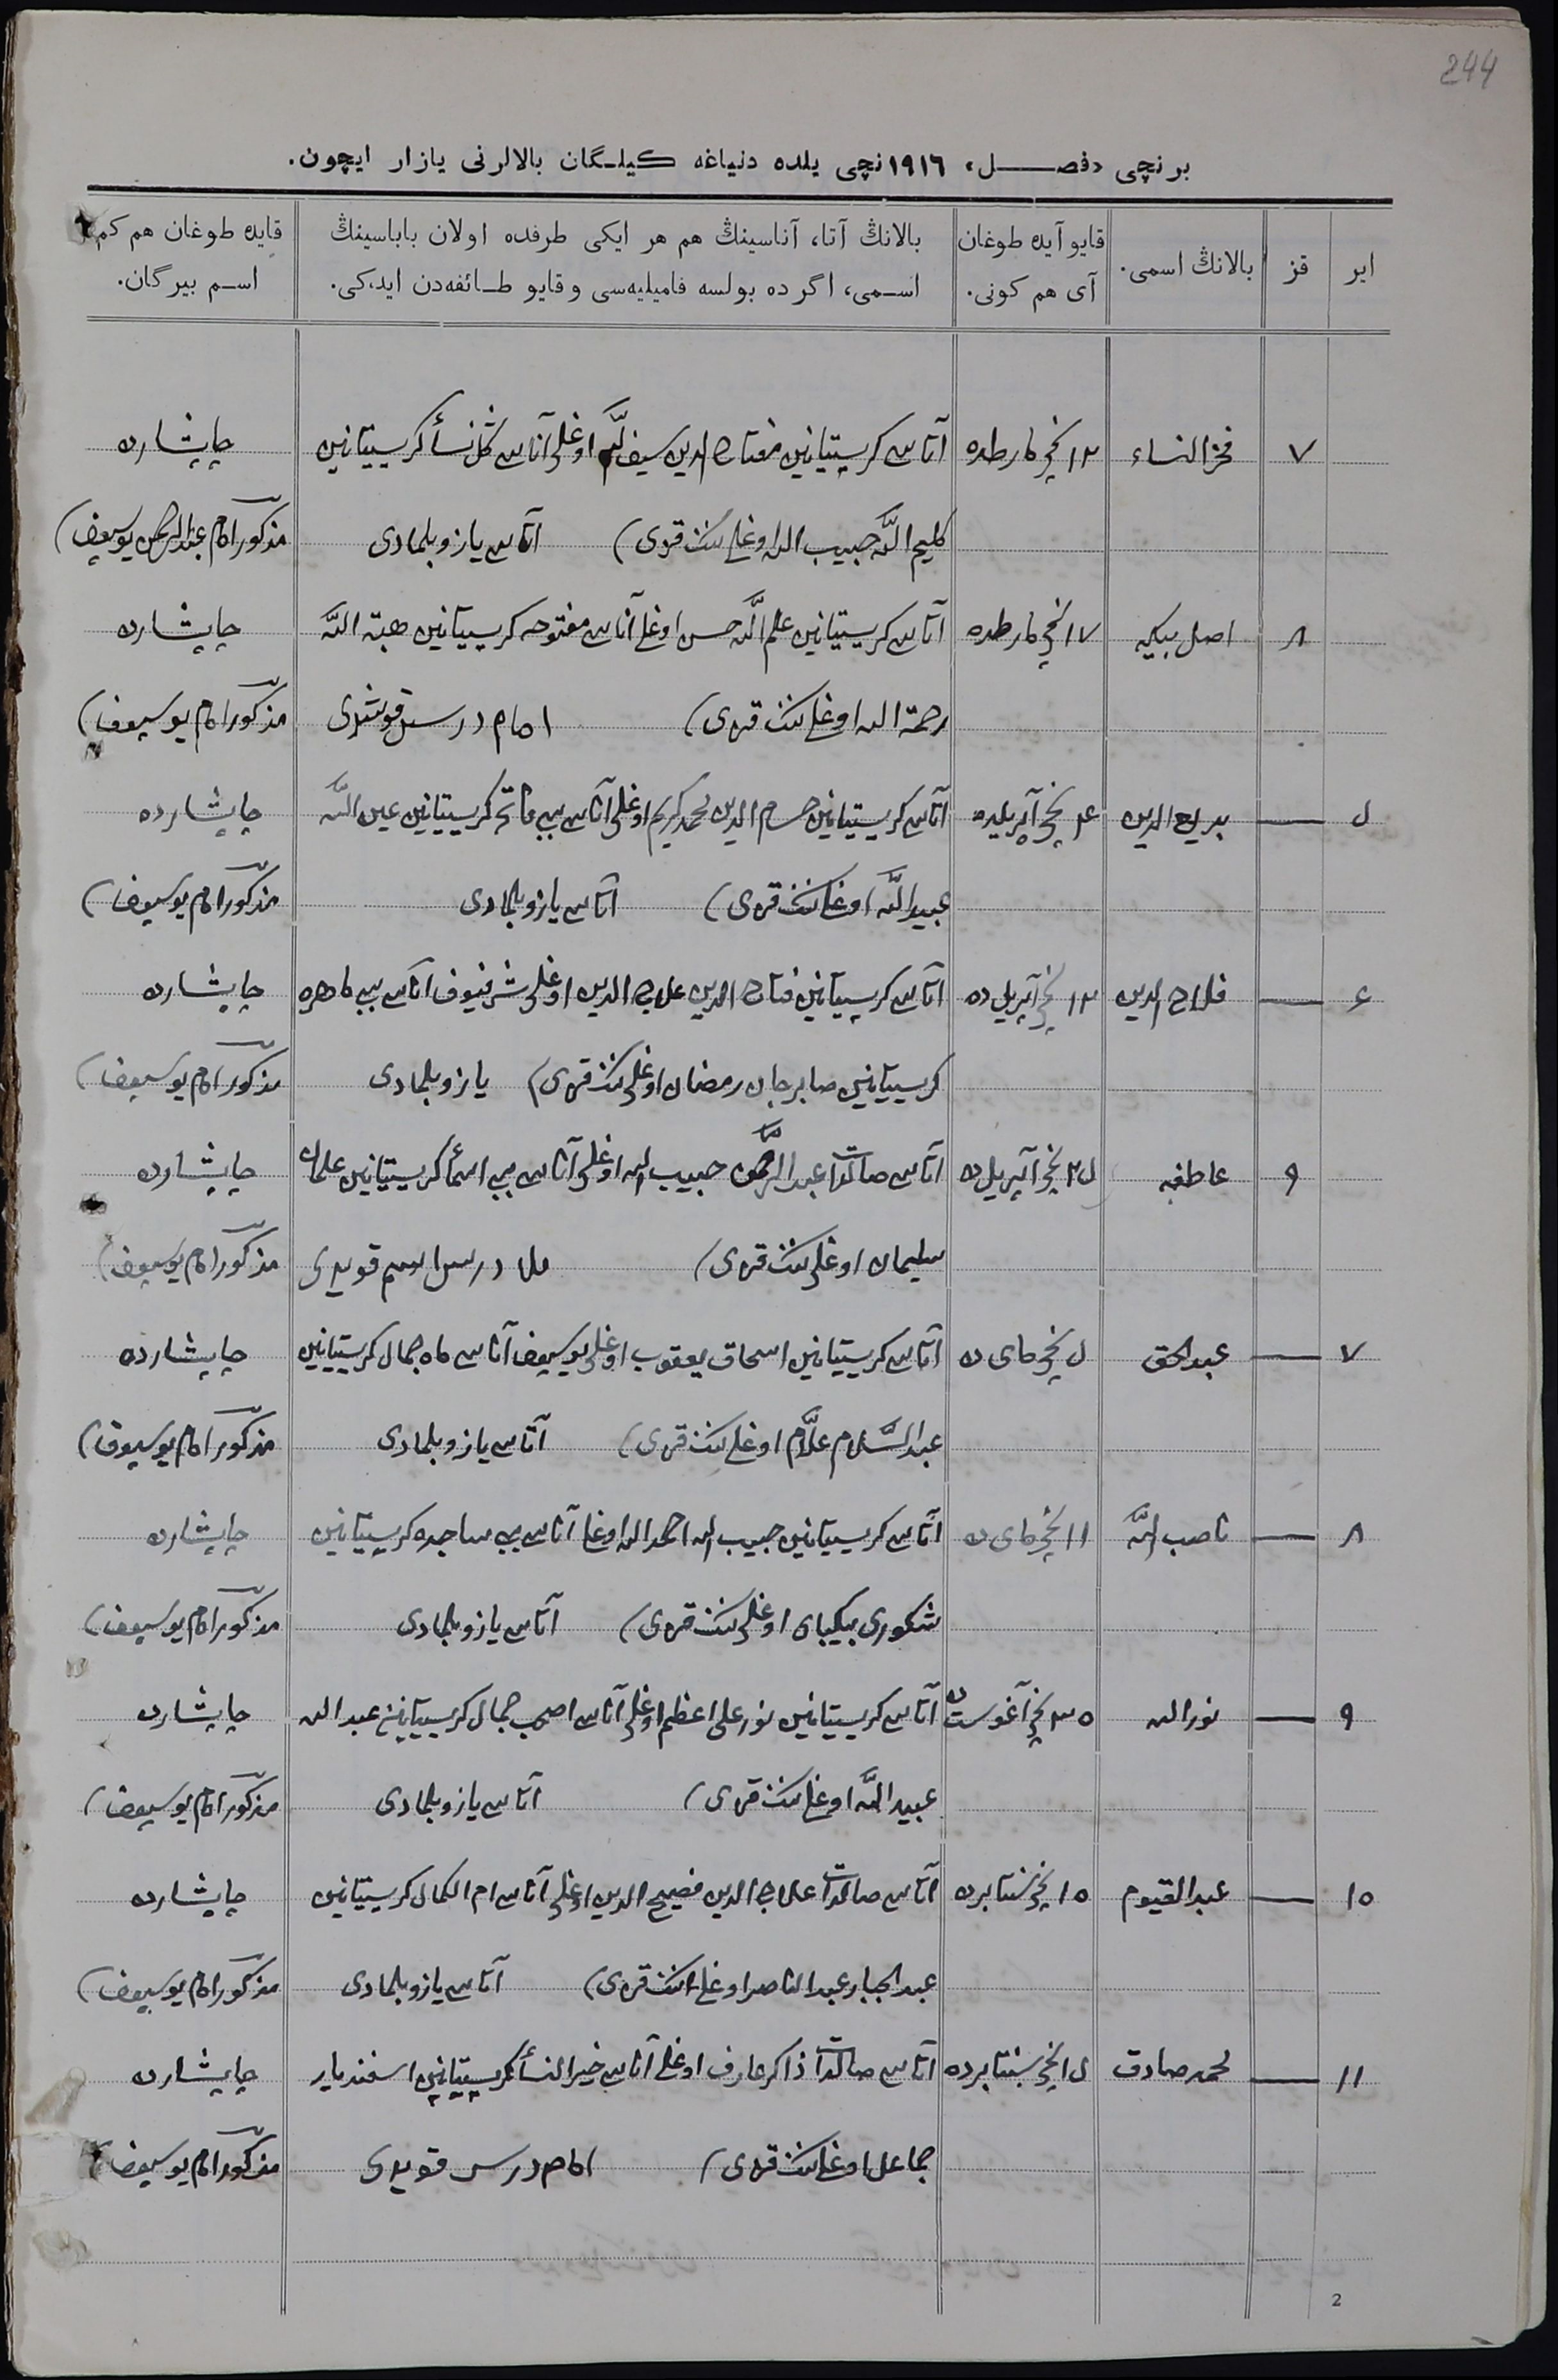 244
برنچی «فصل» ١٩١٦نچی یلده دنیاغه کیلگان بالالرنی یازار ایچون.
ایر
قز
بالانڭ اسمی.
قایو آیده طوغان
آی هم کونی.
بالانڭ آتا، آناسینڭ هم هر ایکی طرفده اولان باباسینڭ
اسمی، اگرده بولسه فامیلیه‌سی و قایو طائفه‌دن ایدکی.
قایده طوغان هم کم
اسم بیرگان.
٧ فخرالنساء ١٣نچی مارطده آتاسی کریستیانین مفتاح الدین سیف الله اوغلی آناسی گل نسأ کریستیانین چاپشارده
کلیم الله حبیب الله اوغلیننڭ قزی) آتاسی یازو بلمادی مذکور امام عبدالرحمن یوسیوف)
٨ اصل بیکه ١٧نچی مارطده آتاسی کریستیانین علم الله حسن اوغلی آناسی مفتوحه کریستیانین هبة الله چاپشارده
رحمة الله اوغلیننڭ قزی) امام درسن قوشدی مذکور امام یوسیوف)
٥ بدیع الدین ٤نچی آپریلده آتاسی کریستیانین حسام الدین محمدکریم اوغلی آناسی بیبی کریستیانین عین الله چاپشارده
عبیدالله اوغلیننڭ قزی) آتاسی یازو بلمادی مذکور امام یوسیوف)
٦ فلاح الدین ١٣نچی آپریل ده آتاسی کریستیانین فتاح الدین علاج الدین اوغلی شرفیوف آناسی بیبی ماهره چاپشارده
کریستیانین صابرجان رمضان اوغلیننڭ قزی) یازو بلمادی مذکور امام یوسیوف)
٩ عاطفه ٢٥نچی آپریل ده آتاسی صالدات عبدالرحمن حبیب الله اوغلی آناسی بیبی اسمأ کریستیانین چاپشارده
سلیمان اوغلیننڭ قزی) ملا درسن اسم قویدی مذکور امام یوسیوف)
٧ عبدالحق ٥نچی مای ده آتاسی کریستیانین اسحاق یعقوب اوغلی یوسیوف آناسی ماه جمال کریستیانین چاپشارده
عبدالسلام علام اوغلیننڭ قزی) آتاسی یازو بلمادی مذکور امام یوسیوف)
٨ ناصب الله ١١نچی مای ده آتاسی کریستیانین حبیب الله احمدالله اوغلی آناسی بیبی ساجده کریستیانین چاپشارده
شکوری بیکبای اوغلیننڭ قزی) آتاسی یازو بلمادی مذکور امام یوسیوف)
٩ نورالله ٣٠نچی آغوست ده آتاسی کریستیانین نورعلی اعظم اوغلی آناسی جمال کریستیانین عبدالله چاپشارده
عبیدالله اوغلیننڭ قزی) آتاسی یازو بلمادی مذکور امام یوسیوف)
١٠ عبدالقیوم ١٠نچی سنتابرده آتاسی صالدات علاج الدین فصیح الدین اوغلی آناسی ام الکمال کریستیانین چاپشارده
عبدالجبار عبدالناصر اوغلیننڭ قزی) آتاسی یازو بلمادی مذکور امام یوسیوف)
١١ محمدصادق ١٥نچی سنتابرده آتاسی صالدات ذاکر عارف اوغلی آناسی خیرالنسأ کریستیانین اسفندیار چاپشارده
اوغلیننڭ قزی) امام درسن قویدی مذکور امام یوسیوف)
2